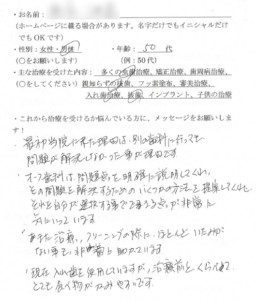 ・お名前：
（ホームページに載る場合があります。名字だけでもイニシャルだけ
でもOKです）
・性別：女性・男性　・年齢：50代
（○をお願いします）　（例：50代）
・主な治療を受けた内容：　多くの虫歯治療、矯正治療、歯周病治療、
（○をしてください）親知らずの抜歯、フッ素塗布、審美治療、
入れ歯治療、抜歯、インプラント、子供の治療
・これから治療を受けるか悩んでいる方に、メッセージをお願いしま
す！
最初当院に来た理由は、別の歯科に行っても
問題が解決しなかった事が理由です。
歯科は問題点を明確に説明してくれ、
その問題を解決するためのいくつかの方法を提案してくれ
それを自分が選択する事できる点が非常に
気にいっています
また治療、クリーニングの際に、ほとんどいたみが
ない事も、非常に助かっています
現在入れ歯を使用していますが、治療前とくらべて
とても食べ物がかみやすいです。